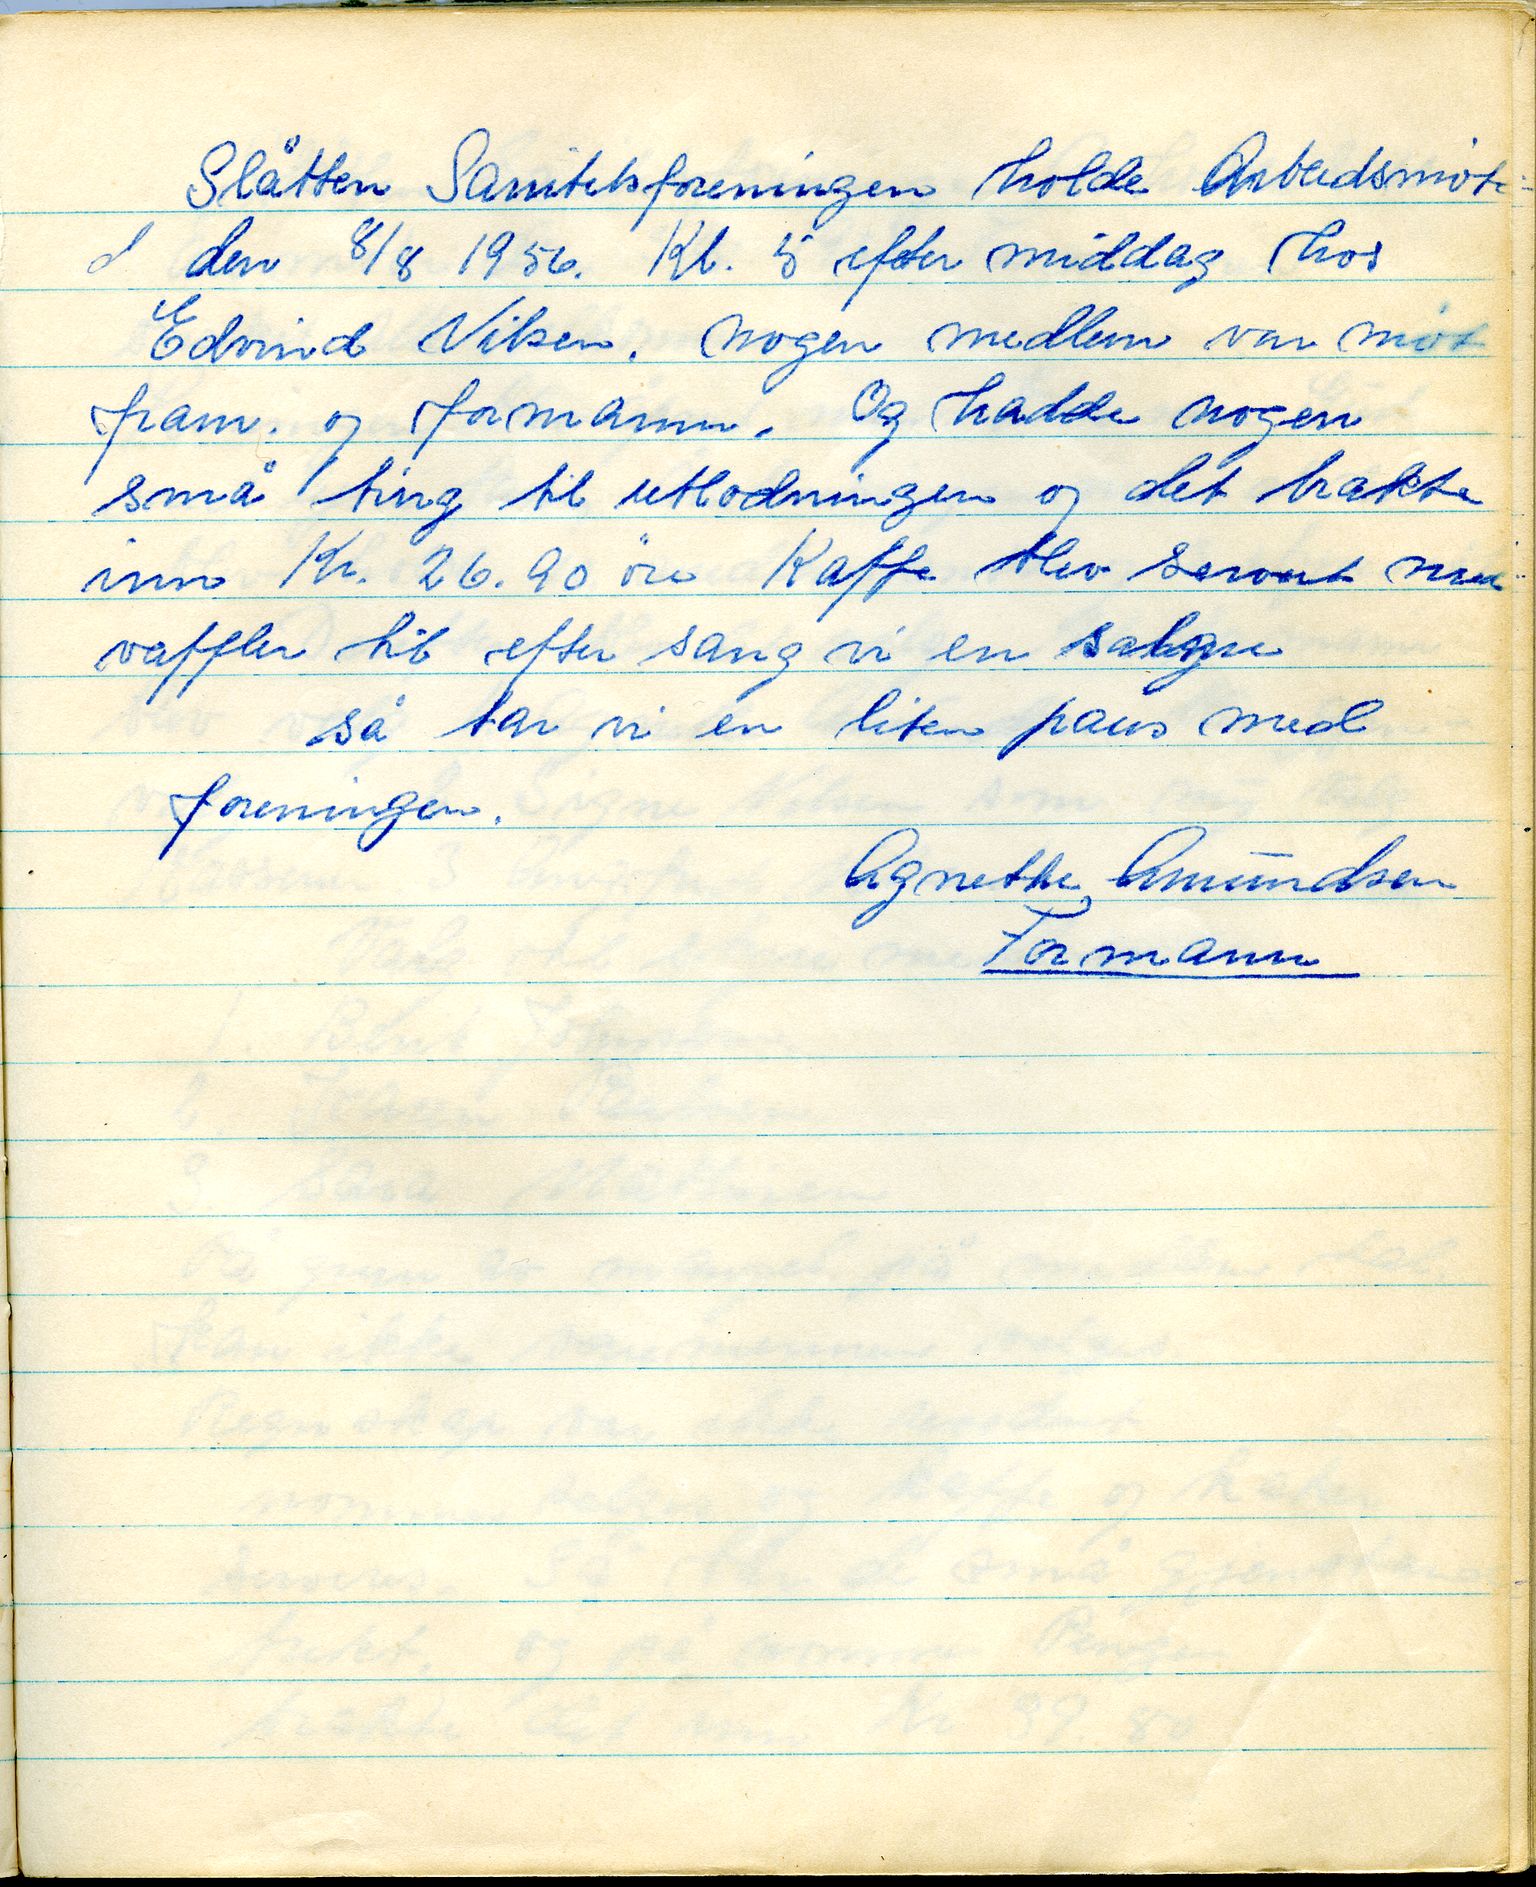 Slåtten Sanitetsforeningen holde Arbeidsmöte
den 8/8 1956. Kl. 5 efter middag hos
Edvind Nilsen. nogen medlem var möt
fram. og formann. Og hadde nogen
små ting til utlodningen og det brakte
inn Kr. 26.90 öre Kaffe blev servert med
vaffler til efter sang vi en salme
så tar vi en liten paus med
foreningen.
Agnethe Amundsen
Formann